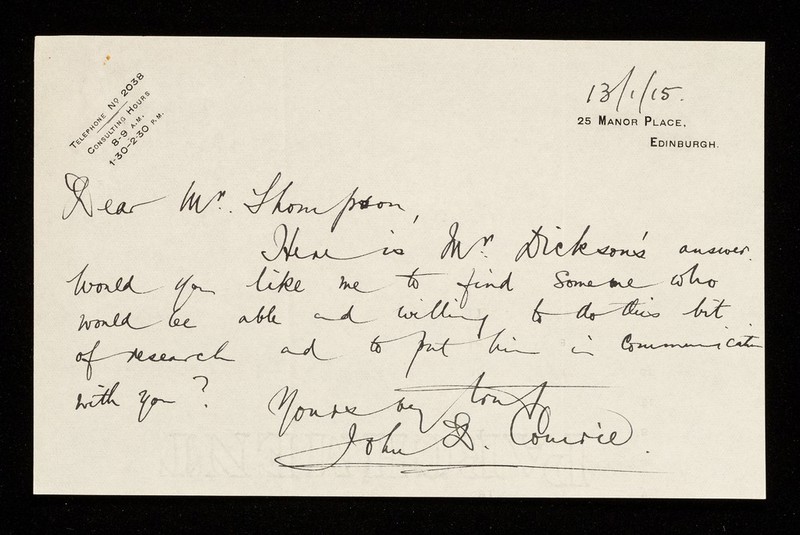 TELEPHONE Nº 2038
CONSULTING HOURS
8-9 A.M.
1·30-2·30 P.M.
13/1/15.
25 MANOR PLACE,
EDINBURGH.
Dear Mr. Thompson,
Here is Mr. Dickson's answer.
Would you like me to find someone who
would be able and willing to do this bit
of research and to put him in communication
with you?
Yours very truly
John D. Comrie.